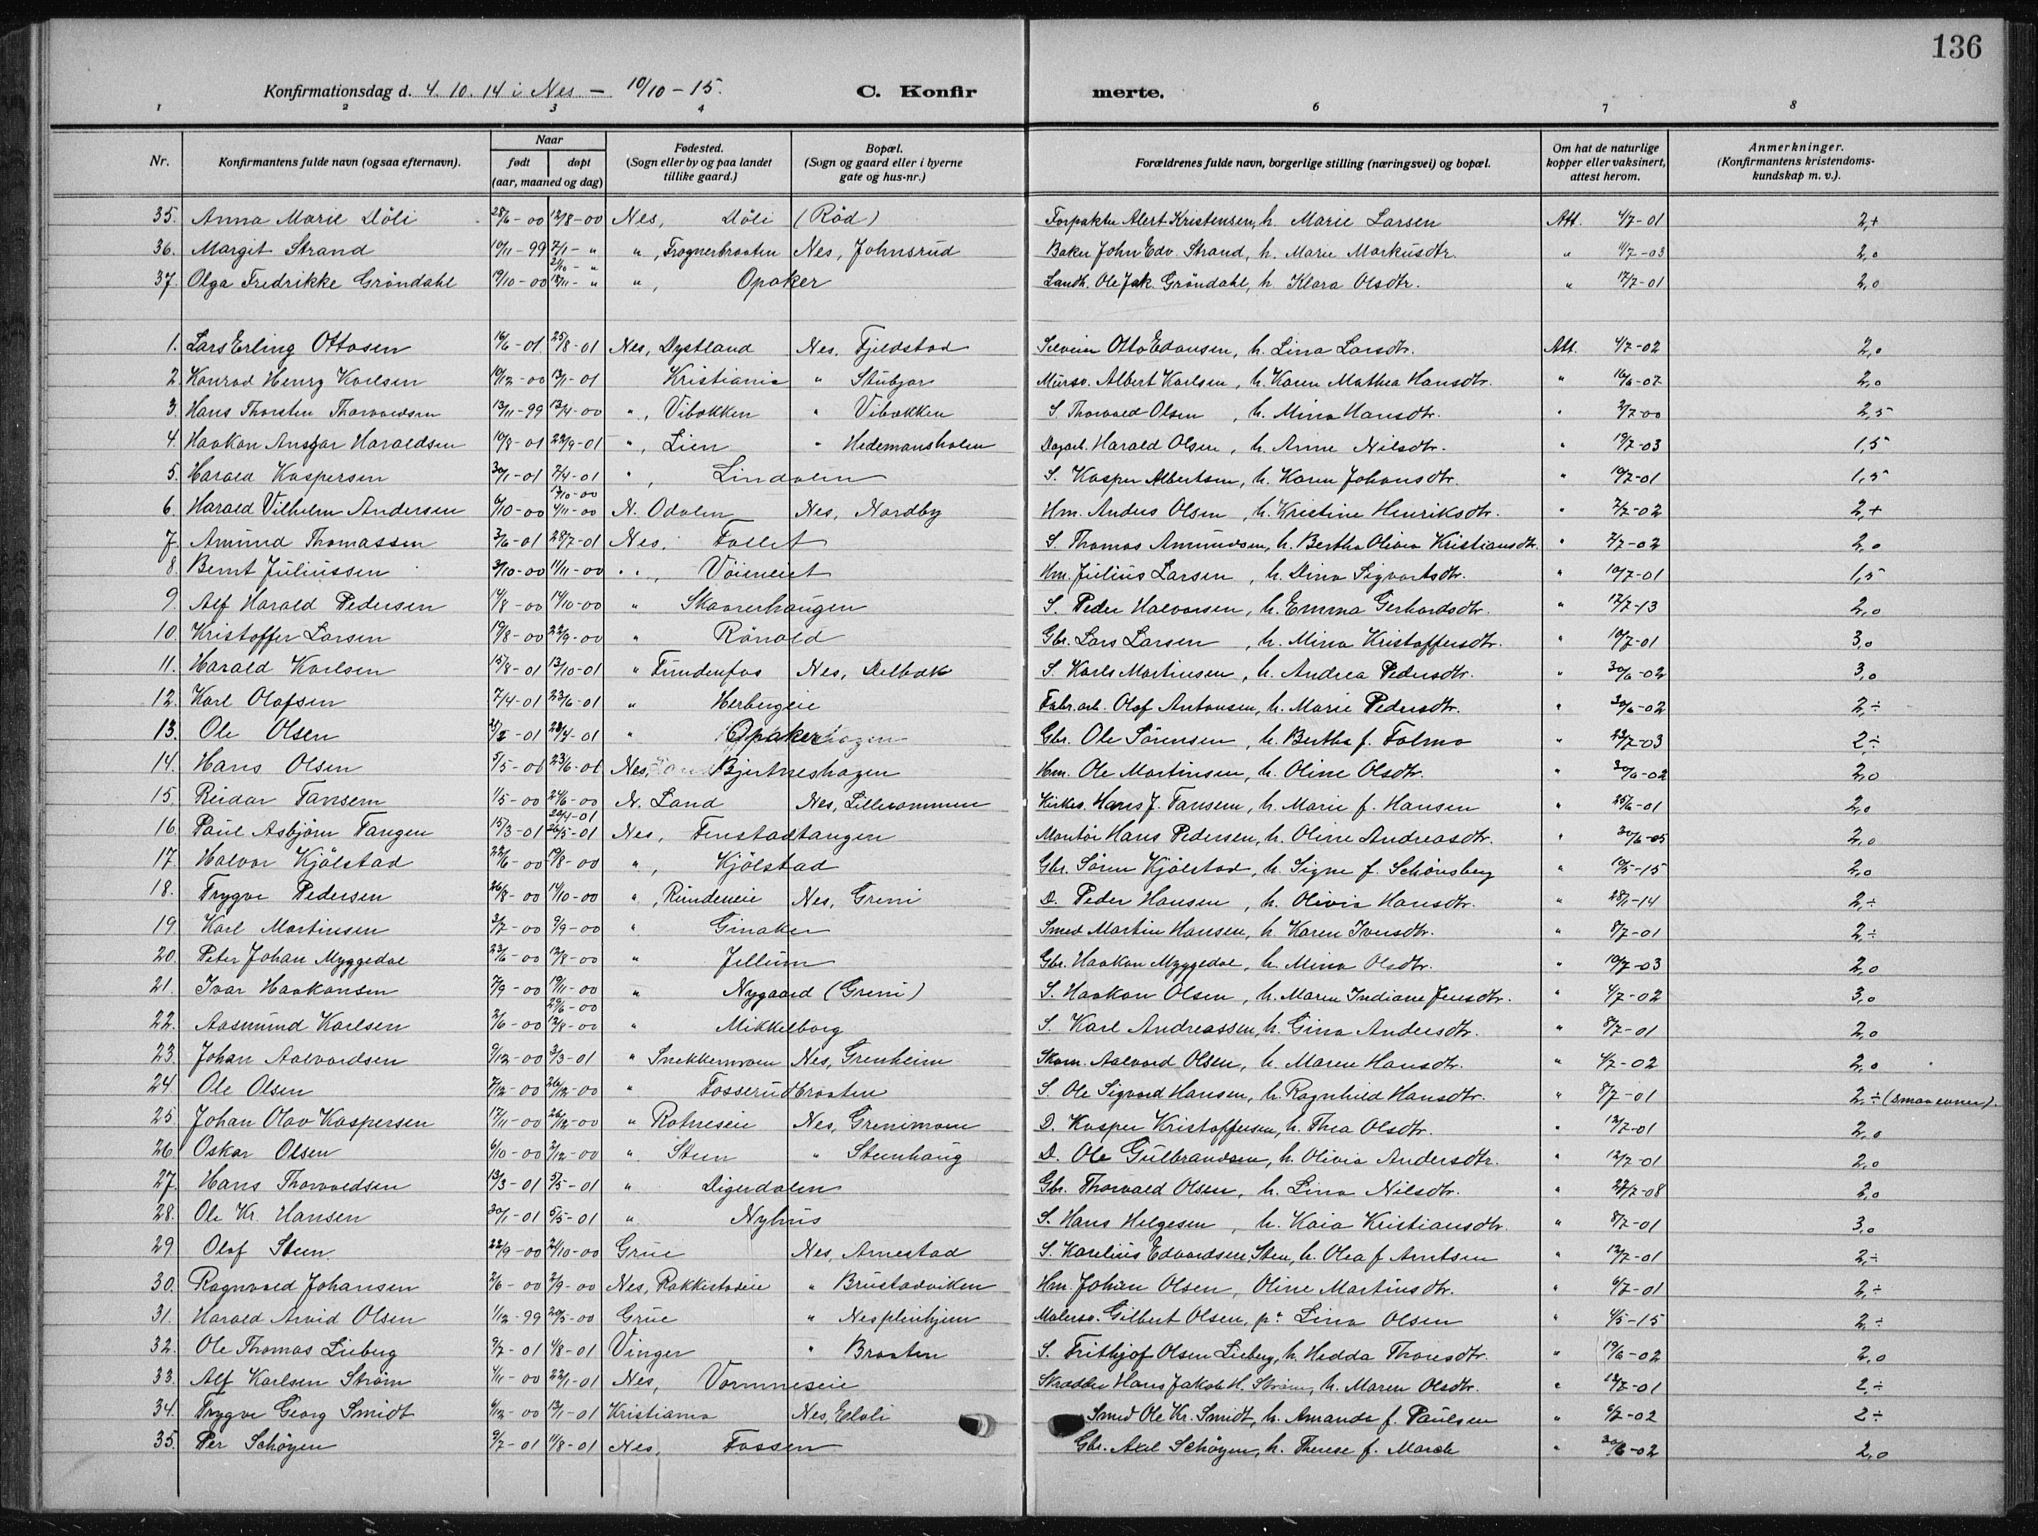 136
Konfirmationsdag d. 4.10.14 i Nes — 10/10 - 15. C. Konfirmerte.
1 2 3 4 6 7 8
Nr. Konfirmantens fulde navn (ogsaa efternavn). Naar født døpt (aar, maaned og dag) Fødested. (Sogn eller by og paa landet tillike gaard.) Bopæl. (Sogn og gaard eller i byerne gate og hus-nr.) Forældrenes fulde navn, borgerlige stilling (næringsvei) og bopæl. Om hat de naturlige kopper eller vaksinert, attest herom. Anmerkninger. (Konfirmantens kristendomskundskap m. v.).
35. Anna Marie Döli 28/6-00 12/8-00 Nes, Döli (Röd) Forpakter Alert Kristensen, h. Marie Larsen Att. 4/7-01 2,+
36. Margit Strand 10/11-99 7/1- " ", Frognerbraaten Nes, Johnsrud Baker John Edv. Strand, h. Marie Markusdtr. " 4/7-03 2,0
37. Olga Fredrikke Gröndahl 19/10-00 18/11- " ", Opaker Landh. Ole Jak. Gröndahl, h. Klara Olsdtr. " 17/7-01 2,0
1. Lars Erling Ottosen 16/6-01 25/8-01 Nes, Dystland Nes, Fjeldstad Otto Edansen, h. Lina Larsdtr. Att. 4/7-02 2,0
2. Konrad Henry Karlsen 10/12-00 13/1-01 Kristiania " Stubjar Mursv. Albert Karlsen, h. Karen Mathea Hansdtr. " 16/6-07 2,0
3. Hans Thorsten Thorvaldsen 13/11-99 13/4-00 ", Vibakken " Vibakken S. Thorvald Olsen, h. Mina Hansdtr. " 3/7-00 2,5
4. Haakon Ansgar Haraldsen 10/8-01 22/9-01 ", Lien " Hedemansholm Dagarb. Harald Olsen, h. Anne Nilsdtr. " 19/7-03 1,5
5. Harald Kaspersen 30/1-01 7/4-01 ", Lindalen S. Kasper Albertsen, h. Karen Johansdtr. " 10/7-01 1,5
6. Harald Vilhelm Andersen 6/10-00 4/11-00 N. Odalen Nes, Nordby Hm. Anders Olsen, h. Kristine Henriksdtr. " 7/7-02 2,+
7. Amund Thomassen 3/6-01 28/7-01 Nes, Fallet S. Thomas Amundsen, h. Bertha Olivia Kristiansdtr. " 7/7-02 2,0
8. Bernt Juliussen 3/10-00 11/11-00 ", Vöieneiet Hm. Julius Larsen, h. Dina Sigvartsdtr. " 10/7-01 1,5
9. Alf Harald Pedersen 14/8-00 14/10-00 " Skaarerhaugen S. Peder Halvorsen, h. Emma Gerhardsdtr. " 17/7-13 2,0
10. Kristoffer Larsen 19/8-00 22/9-00 " Rånald Gbr. Lars Larsen, h. Mina Kristoffersdtr. " 10/7-01 3,0
11. Harald Karlsen 15/8-01 13/10-01 " Funnenfos Nes, Delbæk S. Karls Martinsen, h. Andrea Pedersdtr. " 30/6-02 3,0
12. Karl Olafsen 7/4-01 23/6-01 " Herbergeie Fabr.arb. Olaf Antonsen, h. Marie Pedersdtr. " 30/6-02 2,÷
13. Ole Olsen 21/2-01 28/4-01 " Opaker Gbr. Ole Sörensen, h. Bertha f. Folmo " 23/7-03 2,÷
14. Hans Olsen 5/5-01 23/6-01 Nes, Bjertneshagen Hm. Ole Martinsen, h. Oline Olsdtr. " 30/6-02 2,0
15. Reidar Tansem 1/5-00 24/6-00 N. Land Nes, Lilleommen Kirkes. Hans J. Tansem, h. Marie f. Hansen " 25/6-01 2,0
16. Paul Asbjörn Tangen 15/3-01 26/5-01 Nes, Fenstadtangen Montör Hans Pedersen, h. Oline Andreasdtr. " 30/6-05 2,0
17. Halvor Kjölstad 22/6-00 19/8-00 ", Kjölstad Gbr. Sören Kjölstad, h. Signe f. Schönsberg " 10/5-15 2,0
18. Trygve Pedersen 26/8-00 14/10-00 ", Rundeneie Nes, Greni D. Peder Hansen, h. Olivia Hansdtr. " 28/1-14 2,÷
19. Karl Martinsen 3/7-00 9/9-00 " Ginaker Smed Martin Hansen, h. Karen Iversdtr. " 8/7-01 2,÷
20. Peter Johan Myggedal 23/6-00 12/8-00 " Jellum Gbr. Haakon Myggedal, h. Mina Olsdtr. " 10/7-03 2,0
21. Ivar Haakonsen 7/9-00 19/11-00 " Nygaard (Greni) S. Haakon Olsen, h. Maren Indiane Jensdtr. " 4/7-02 3,0
22. Aasmund Karlsen 2/6-00 12/8-00 " Mikkelborg S. Karl Andreassen, h. Gina Andersdtr. " 8/7-01 2,0
23. Johan Aalvardsen 9/12-00 3/3-01 " Snekkermoen Nes, Grenheim Skom. Aalvard Olsen, h. Maren Hansdtr. " 4/7-02 2,0
24. Ole Olsen 7/12-00 26/12-00 " Fosserudbraaten S. Ole Sigvard Hansen, h. Ragnhild Hansdtr. " 8/7-01 2,÷ (smaa evner).
25. Johan Olav Kaspersen 17/11-00 26/12-00 " Rotneseie Nes, Grenimoen D. Kasper Kristoffersen, h. Thea Olsdtr. " 12/7-01 2,0
26. Oskar Olsen 6/10-00 2/12-00 " Steen " Steenhaug D. Ole Gulbrandsen, h. Olivia Andersdtr. " 12/7-01 2,0
27. Hans Thorvaldsen 13/3-01 5/5-01 " Digerdalen Gbr. Thorvald Olsen, h. Lina Nilsdtr. " 27/7-08 2,0
28. Ole Kr. Hansen 30/1-01 5/5-01 " Nyhus S. Hans Helgesen, h. Kaia Kristiansdtr. " 8/7-01 3,0
29. Olaf Steen 22/9-00 21/10-00 Grue Nes, Arnestad S. Karelius Edvardsen Sten, h. Olea f. Arntsen " 12/7-01 2,÷
30. Ragnvald Johansen 2/6-00 2/9-00 Nes, Rakkestadeie " Brustadviken Hm. Johan Olsen, Oline Martinsdtr. " 6/7-01 2,÷
31. Harald Arvid Olsen 1/12-99 20/5-00 Grue " Nespleiehjem Malersv. Gilbert Olsen, p. Lina Olsen " 4/5-15 2,÷
32. Ole Thomas Lieberg 9/7-01 4/8-01 Vinger " Braaten S. Frithjof Olsen Lieberg, h. Hedda Thoresdtr. " 19/6-02 2,0
33. Alf Karlsen Ström 4/11-00 22/1-01 Nes, Vormneseie Skrædder Hans Jakob H. Ström, h. Maren Olsdtr. " 12/7-01 2,÷
34. Trygve Georg Smidt 6/12-00 13/1-01 Kristiania Nes, Edöli Smed Ole Kr. Smidt, h. Amanda f. Paulsen " 6/7-02 2÷
35. Per Schöyen 9/7-01 11/8-01 Nes, Fossen Gbr. Axel Schöyen, h. Therese f. March " 30/6-02 2,0